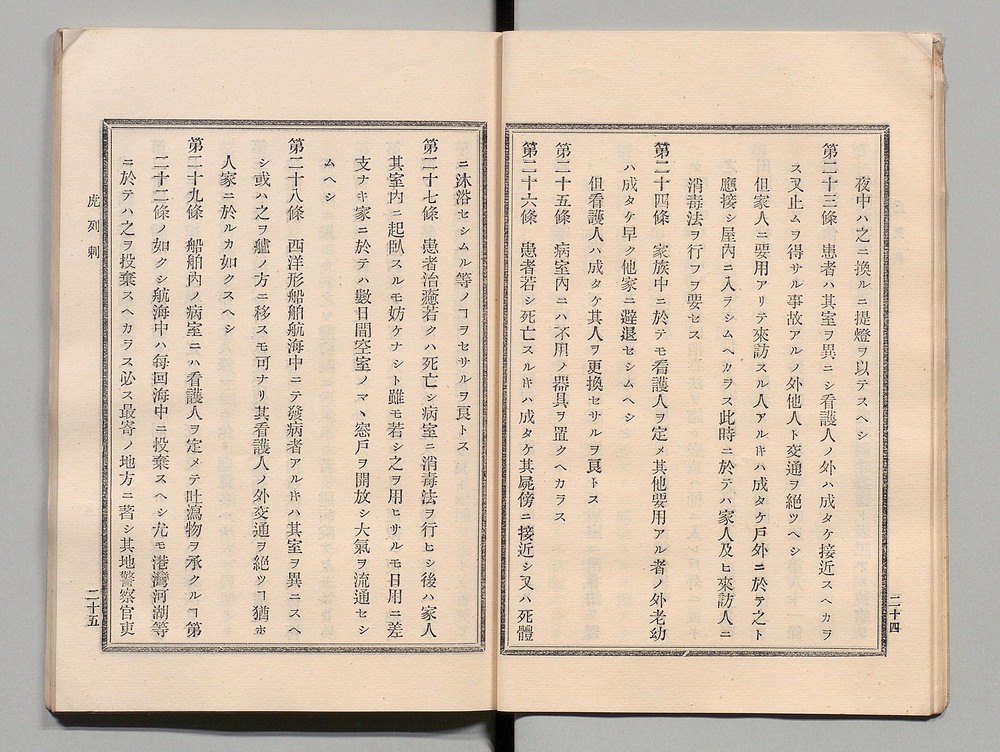 夜中ハ之ニ換ルニ提燈ヲ以テスヘシ
第二十三條 患者ハ其室ヲ異ニシ看護人ノ外ハ成タケ接近スヘカラ
ス又止ムヲ得サル事故アルノ外他人ト交通ヲ絶ツヘシ
但家人ニ要用アリテ來訪スル人アルキハ成タケ戶外ニ於テ之ト
應接シ屋內ニ入ラシムヘカラス此時ニ於テハ家人及ヒ來訪人ニ
消毒法ヲ行フヲ要セス
第二十四條 家族中ニ於テモ看護人ヲ定メ其他要用アル者ノ外老幼
ハ成タケ早ク他家ニ避退セシムヘシ
但看護人ハ成タケ其人ヲ更換セサルヲ良トス
第二十五條 病室內ニハ不用ノ器具ヲ置クヘカラス
第二十六條 患者若シ死亡スルキハ成タケ其屍傍ニ接近シ又ハ死體
二十四
ニ沐浴セシムル等ノヿヲセサルヲ良トス
第二十七條 患者治癒若クハ死亡シ病室ニ消毒法ヲ行ヒシ後ハ家人
其室內ニ起臥スルモ妨ケナシト雖モ若シ之ヲ用ヒサルモ日用ニ差
支ナキ家ニ於テハ數日間空室ノマヽ窓戶ヲ開放シ大氣ヲ流通セシ
ムヘシ
第二十八條 西洋形船舶航海中ニテ發病者アルキハ其室ヲ異ニスヘ
シ或ハ之ヲ艫ノ方ニ移スモ可ナリ其看護人ノ外交通ヲ絶ツヿ猶ホ
人家ニ於ルカ如クスヘシ
第二十九條 船舶內ノ病室ニハ看護人ヲ定メテ吐瀉物ヲ承クルヿ第
二十二條ノ如クシ航海中ハ每回海中ニ投棄スヘシ尤モ港灣河湖等
ニ於テハ之ヲ投棄スヘカラス必ス最寄ノ地方ニ著シ其地警察官吏
虎列剌
二十五